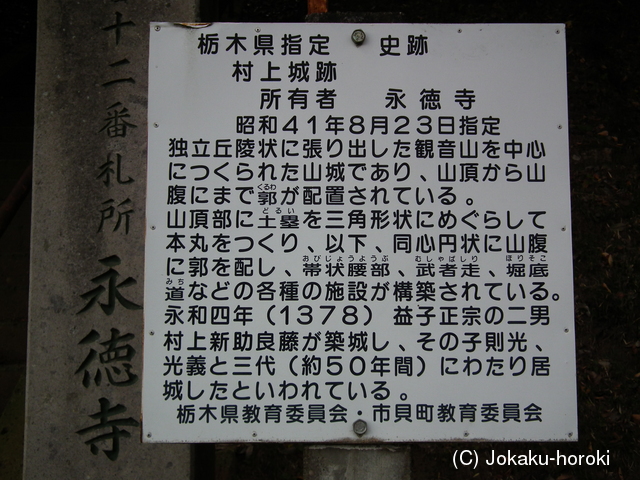 十二番札所 永徳寺
栃木県指定 史跡
村上城跡
所有者 永徳寺
昭和41年8月23日指定
独立丘陵状に張り出した観音山を中心
につくられた山城であり、山頂から山
腹にまで郭が配置されている。
くるわ
山頂部に土塁を三角形状にめぐらして
どるい
本丸をつくり、以下、同心円状に山腹
に郭を配し、帯状腰部、武者走、堀底
おびじょうようぶ むしゃばしり ほりそこ
道などの各種の施設が構築されている。
みち
永和四年(1378) 益子正宗の二男
村上新助良藤が築城し、その子則光、
光義と三代(約50年間)にわたり居
城したといわれている。
栃木県教育委員会・市貝町教育委員会
(C) Jokaku-horoki